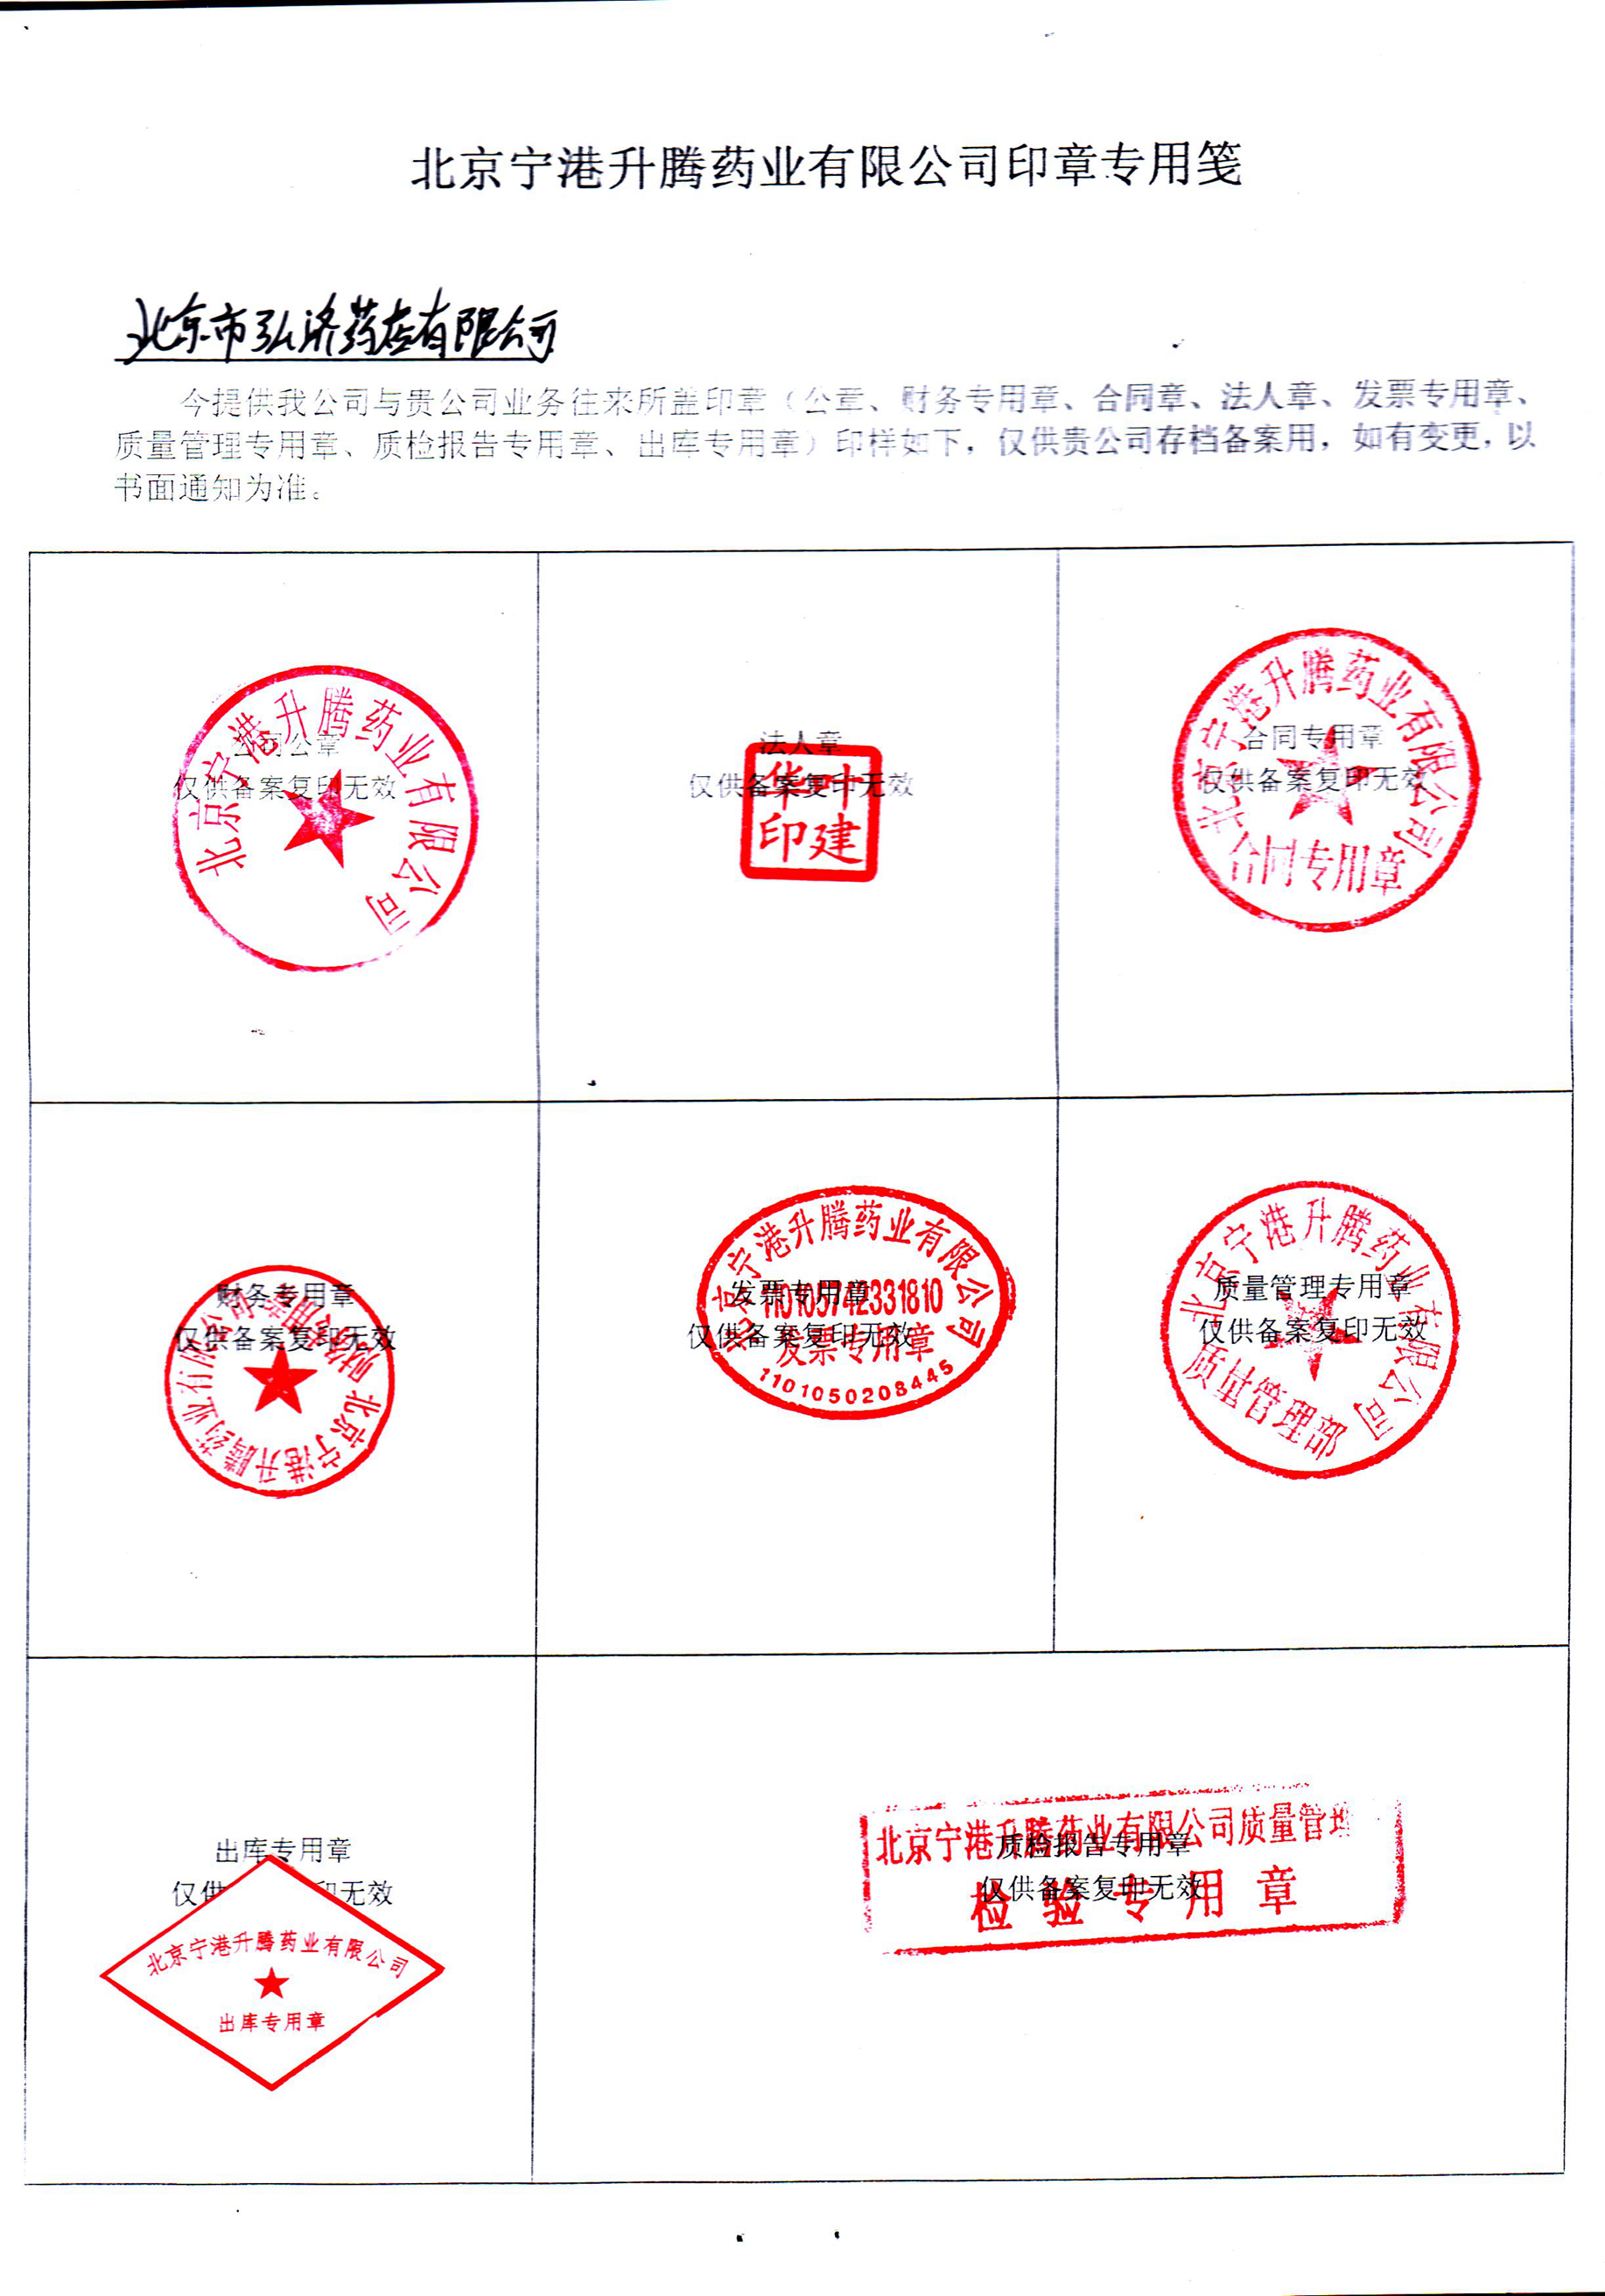 北京宁港升腾药业有限公司印章专用笺
北京市弘济药店有限公司
今提供我公司与贵公司业务往来所盖印章（公章、财务专用章、合同章、法人章、发票专用章、
质量管理专用章、质检报告专用章、出库专用章）印样如下，仅供贵公司存档备案用，如有变更，以
书面通知为准。
公司公章
仅供备案复印无效
北京宁港升腾药业有限公司
法人章
仅供备案复印无效
华叶
印建
合同专用章
仅供备案复印无效
北京宁港升腾药业有限公司
合同专用章
财务专用章
仅供备案复印无效
北京宁港升腾药业有限公司
财务专用章
发票专用章
仅供备案复印无效
北京宁港升腾药业有限公司
110105742331810
发票专用章
1101050208445
质量管理专用章
仅供备案复印无效
北京宁港升腾药业有限公司
质量管理部
出库专用章
仅供 印无效
北京宁港升腾药业有限公司
出库专用章
质检报告专用章
仅供备案复印无效
北京宁港升腾药业有限公司质量管理
检验专用章